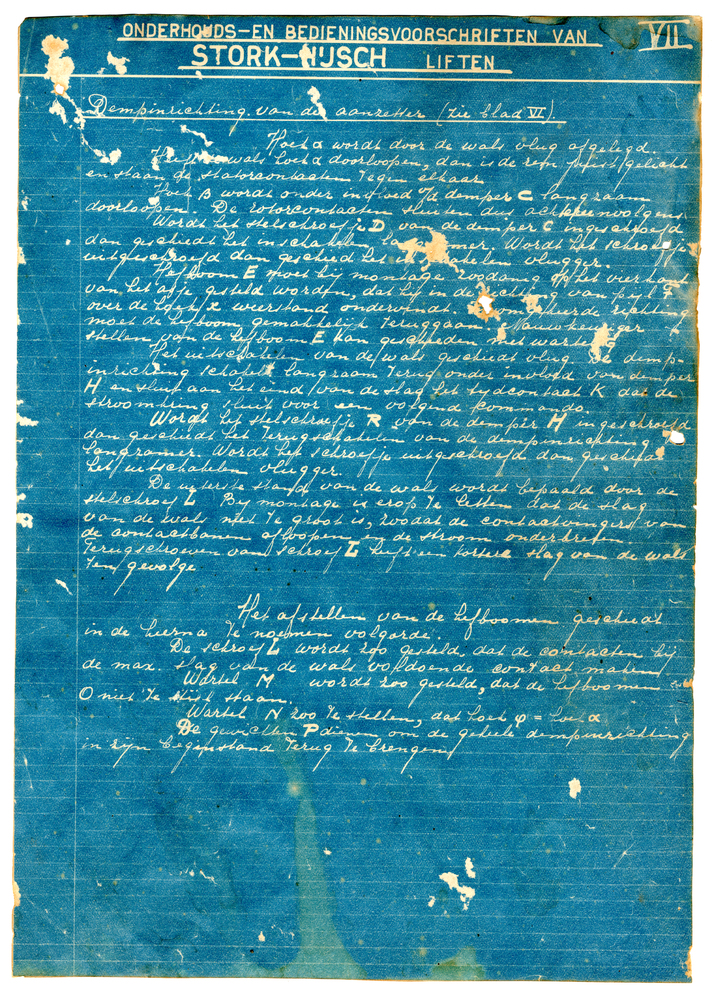 ONDERHOUDS-EN BEDIENINGSVOORSCHRIFTEN VAN VII
STORK-HIJSCH LIFTEN
Dempinrichting van de aanzetter (zie blad VI).
Hoek α wordt door de wals vlug afgelegd.
wals hoek α doorloopen, dan is de rem juist gelicht
en staan de statorcontacten tegen elkaar.
Hoek B wordt onder invloed v/d demper C langzaam
doorloopen. De rotorcontacten sluiten dus achtereenvolgens.
Wordt het stelschroefje D van de demper C ingeschroefd
dan geschiedt het inschakelen Wordt het schroefje
uitgeschroefd dan geschied het vlugger.
Hefboom E moet bij montage zoodanig op het vierkant
van het asje gesteld worden, dat hij in de richting van pijl F
over de hoek weerstand ondervindt. richting
moet de hefboom gemakkelijk teruggaan. Nauwkeuriger
stellen van de hefboom E kan geschieden met wartel
Het uitschakelen van de wals geschiedt vlug. De demp-
inrichting schakelt langzaam terug onder invloed van demper
H en sluit aan het eind van de slag het tijdcontact K dat de
stroomkring sluit voor een volgend kommando.
Wordt het stelschroefje R van de demper H ingeschroefd
dan geschiedt het terugschakelen van de dempinrichting
langzamer. Wordt het schroefje uitgeschroefd dan geschiedt
het uitschakelen vlugger.
De uiterste stand van de wals wordt bepaald door de
stelschroef L. Bij montage is erop te letten dat de slag
van de wals niet te groot is, zoodat de contactvingers van
de contactbanen afloopen en de stroom onderbreken.
Terugschroeven van schroef L heeft een kortere slag van de wals
ten gevolge.
Het afstellen van de hefboomen geschiedt
in de hierna te noemen volgorde.
De schroef L wordt zoo gesteld, dat de contacten bij
de max. slag van de wals voldoende contact maken.
Wartel M wordt zoo gesteld, dat de hefboomen
O niet te stijf staan.
Wartel N zoo te stellen, dat hoek φ = hoek α
De gewichten P dienen om de geheele dempinrichting
in zijn beginstand terug te brengen.